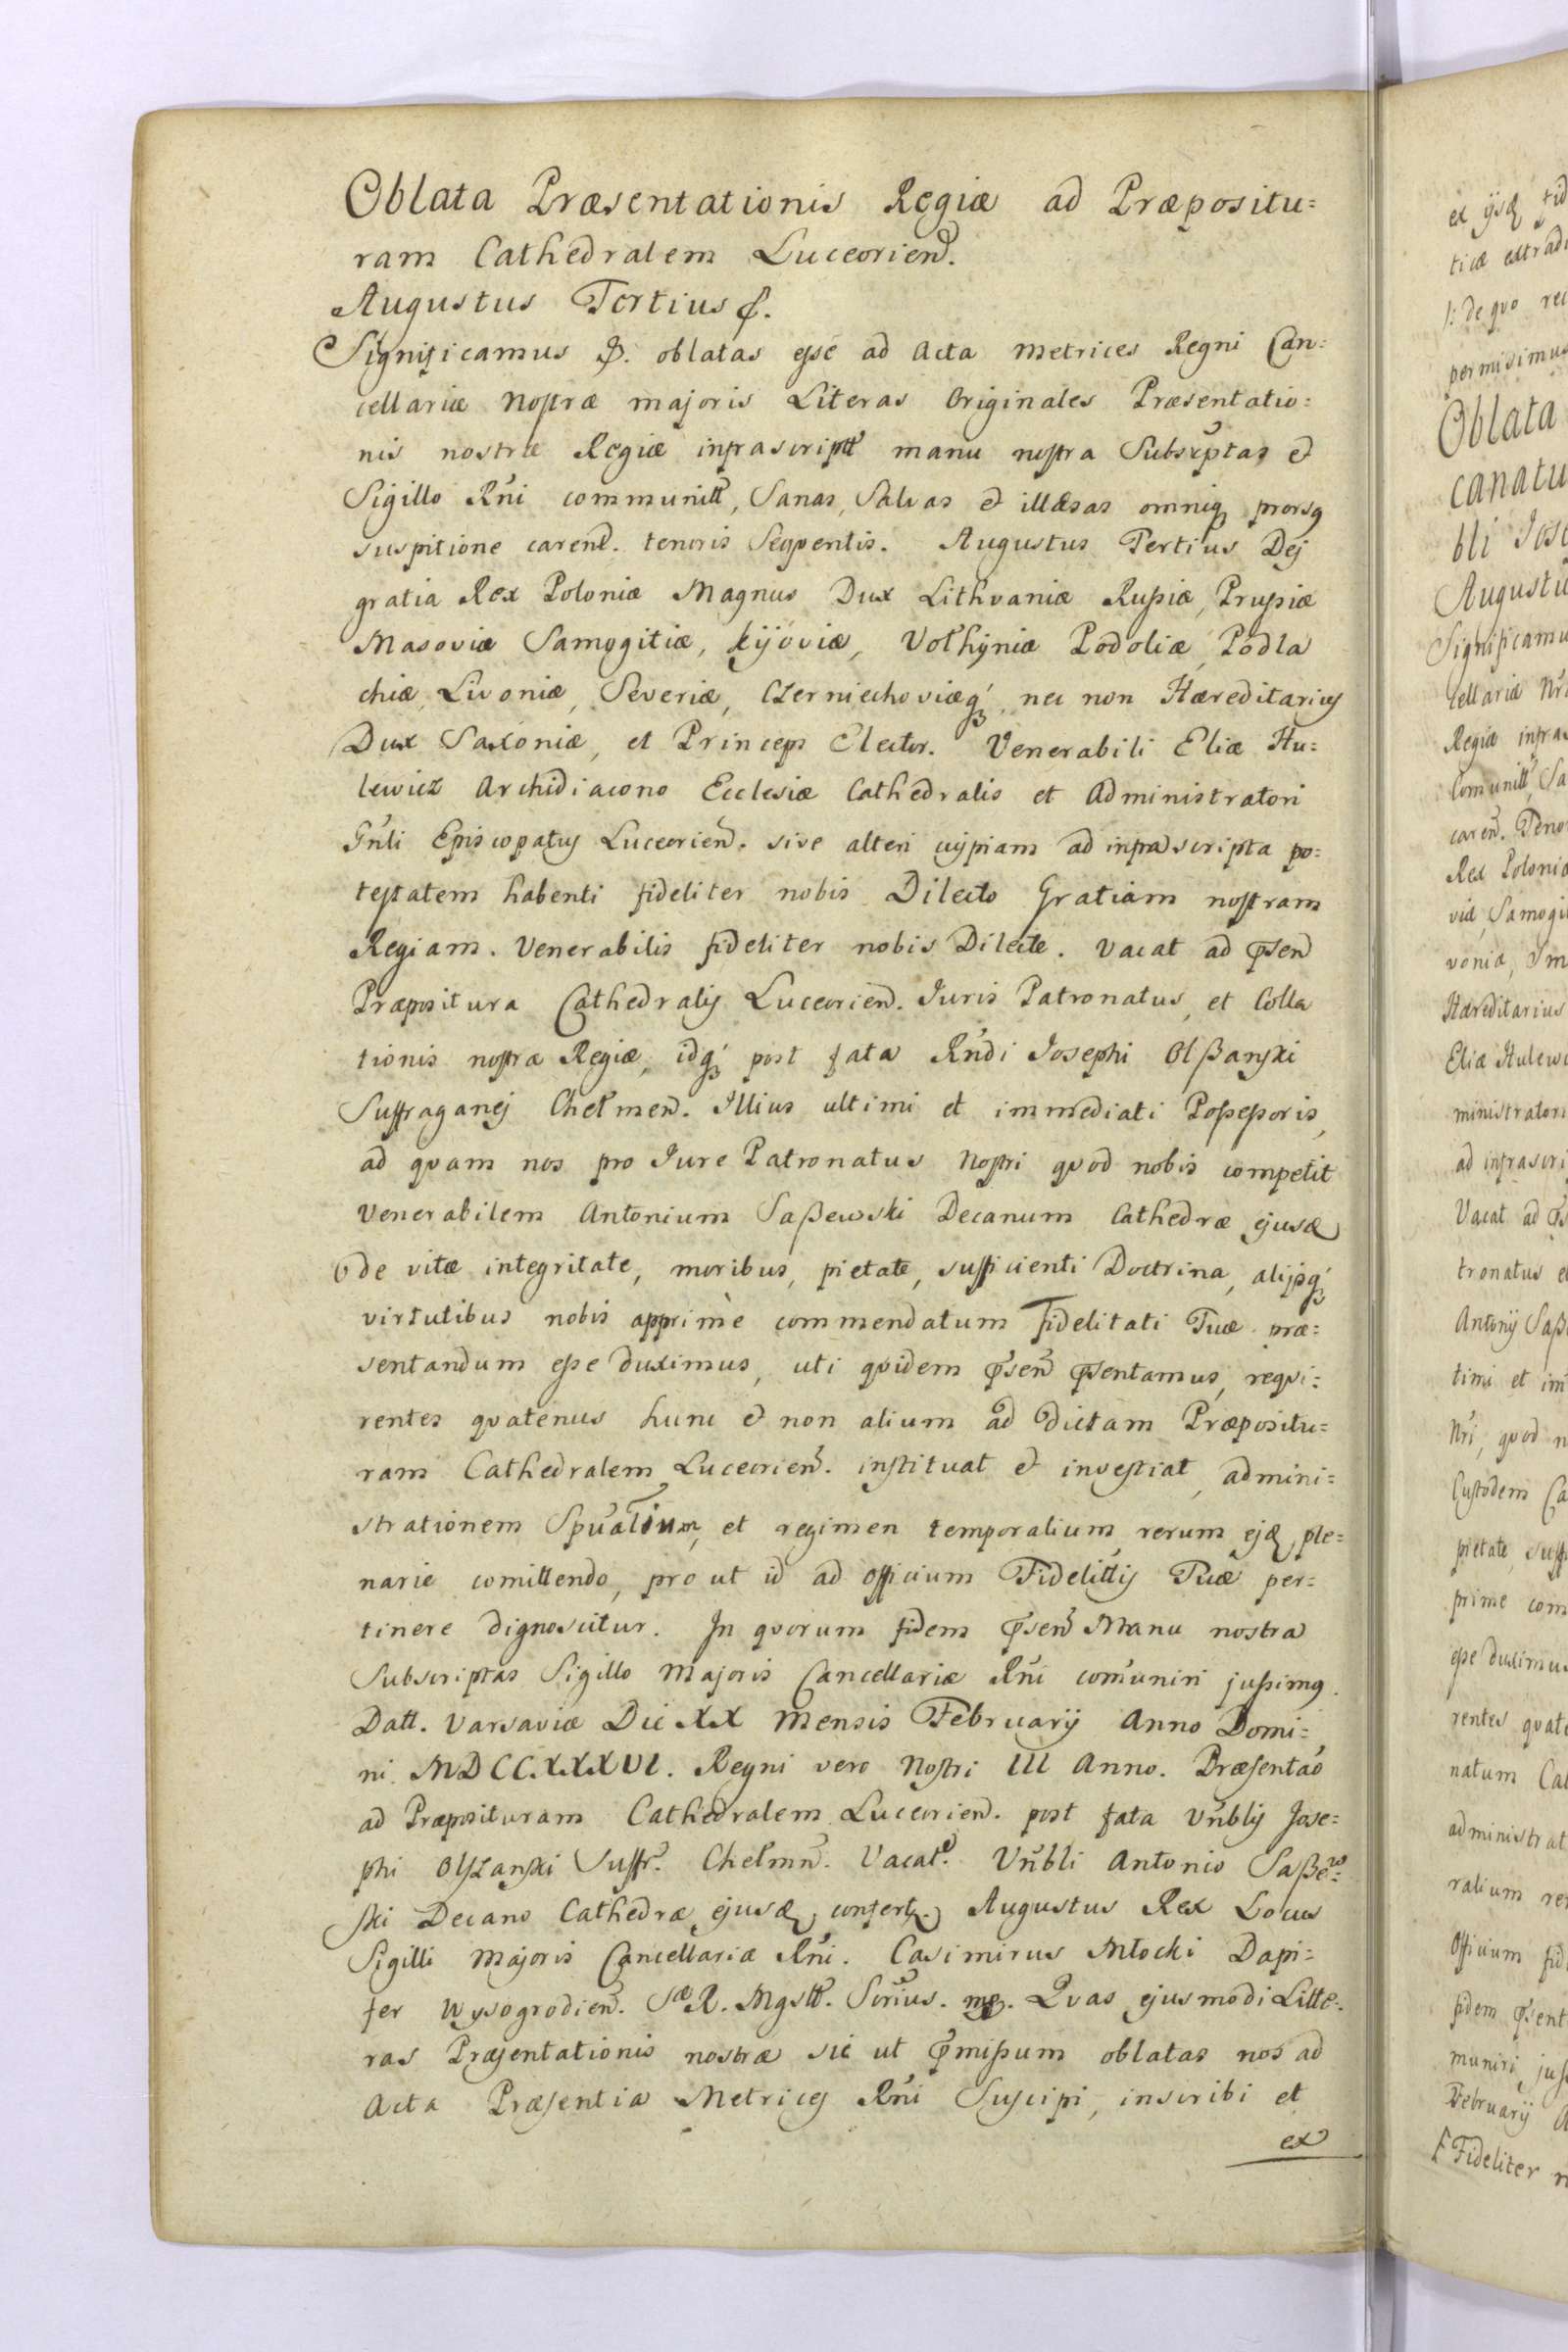 Oblata Præsentationis Regiæ ad Præpositu=
ram Cathedralem Luceorien̄.
Augustus Tertius &.
Significamus &. oblatas esse ad Acta Metrices Regni Can=
cellariæ Nostræ majoris Literas Originales Præsentatio=
nis nostræ Regiæ infrascriptt manu nostra Subscrptas et
Sigillo Rńi communitt, Sanas, Salvas et illæsas omniq̨ prorsꝯ
suspitione caren̄. tenoris Seqventis. Augustus Tertius Dej
gratia Rex Poloniæ Magnus Dux Lithvaniæ Rußiæ, Prußiæ
Masoviæ Samogitiæ, Kijoviæ, Volhyniæ Podoliæ, Podla
chiæ, Livoniæ, Severiæ, Czerniechoviæq́, nec non Hæreditariꝯ
Dux Saxoniæ, et Princeps Elector. Venerabili Eliæ Hu=
lewicz Archidiacono Ecclesiæ Cathedralis et Administratori
Gńli Episcopatꝯ Luceorien̄. sive alteri cujpiam ad infrascripta po=
testatem habenti fideliter nobis Dilecto Gratiam nostram
Regiam. Venerabilis fideliter nobis Dilecte. Vacat ad p̄sen̄
Præpositura Cathedralis Luceorien̄. Juris Patronatus, et Colla
tionis nostræ Regiæ, idq́ post fata Rńdi Josephi Olßanski
Suffraganej Chelmen̄. Illius ultimi et immediati Poßeßoris,
ad qvam nos pro Jure Patronatus Nostri qvod nobis competit
Venerabilem Antonium Saßewski Decanum Cathedræ ejusd
de vitæ integritate, moribus, pietate, sufficienti Doctrina, alijsq́
virtutibus nobis apprimè commendatum Fidelitati Tuæ præ=
sentandum eße duximus, uti qvidem p̄sen̄ p̄sentamus, reqvi=
rentes qvatenus hunc et non alium ad dictam Præpositu=
ram Cathedralem Luceorien̄. instituat et investiat, admini=
strationem Spūalium, et regimen temporalium rerum ejꝯd ple=
narie comittendo, pro ut id ad officium Fidelittis Tuæ per=
tinere dignoscitur. In qvorum fidem p̄sen̄ Manu nostra
Subscriptas Sigillo Majoris Cancellariæ Rńi com̄uniri jußimꝯ.
Datt. Varsaviæ Die XX Mensis Februarij Anno Domi=
ni MDCCXXXVI. Regni vero Nostri III Anno. Præsentaō
ad Præposituram Cathedralem Luceorien̄. post fata Vn̄blis Jose=
phi Olszanski Suffr̄. Chelmn̄. Vacatē. Vn̄bli Antonio Saßew=
ski Decano Cathedræ ejusd, confert. Augustus Rex Locus
Sigilli Majoris Cancellariæ Rńi. Casimirus Młocki Dapi=
fer Wysogrodien̄. Sæ R. Mgstt. Scrīus. mp. Qvas ejusmodi Litte=
ras Præsentationis nostræ sic ut p̄mißum oblatas nos ad
Acta Præsentia Metrices Rńi Suscipi, inscribi et
ex
ex ijsd
ticæ extrad
/: de qvo
permisimus
Oblata
canatu
bli Jos
Augustu
Significamu
cellariæ Nr̄
Regiæ infra
Comunitt, Sa
caren̄. Teno
Rex Poloniæ
viæ, Samogi
voniæ,
Hæreditarius
Eliæ Hulewi
ministratori
ad infrascri
Vacat ad
tronatus
Antonij Saß
timi et im
Nri, qvod n
Custodem Ca
pietate, suff
prime com
eße duximu
rentes qvat
natum Ca
administrat
ralium re
Officium fid
fidem p̄sent
muniri, juß
Februarij A
Fideliter